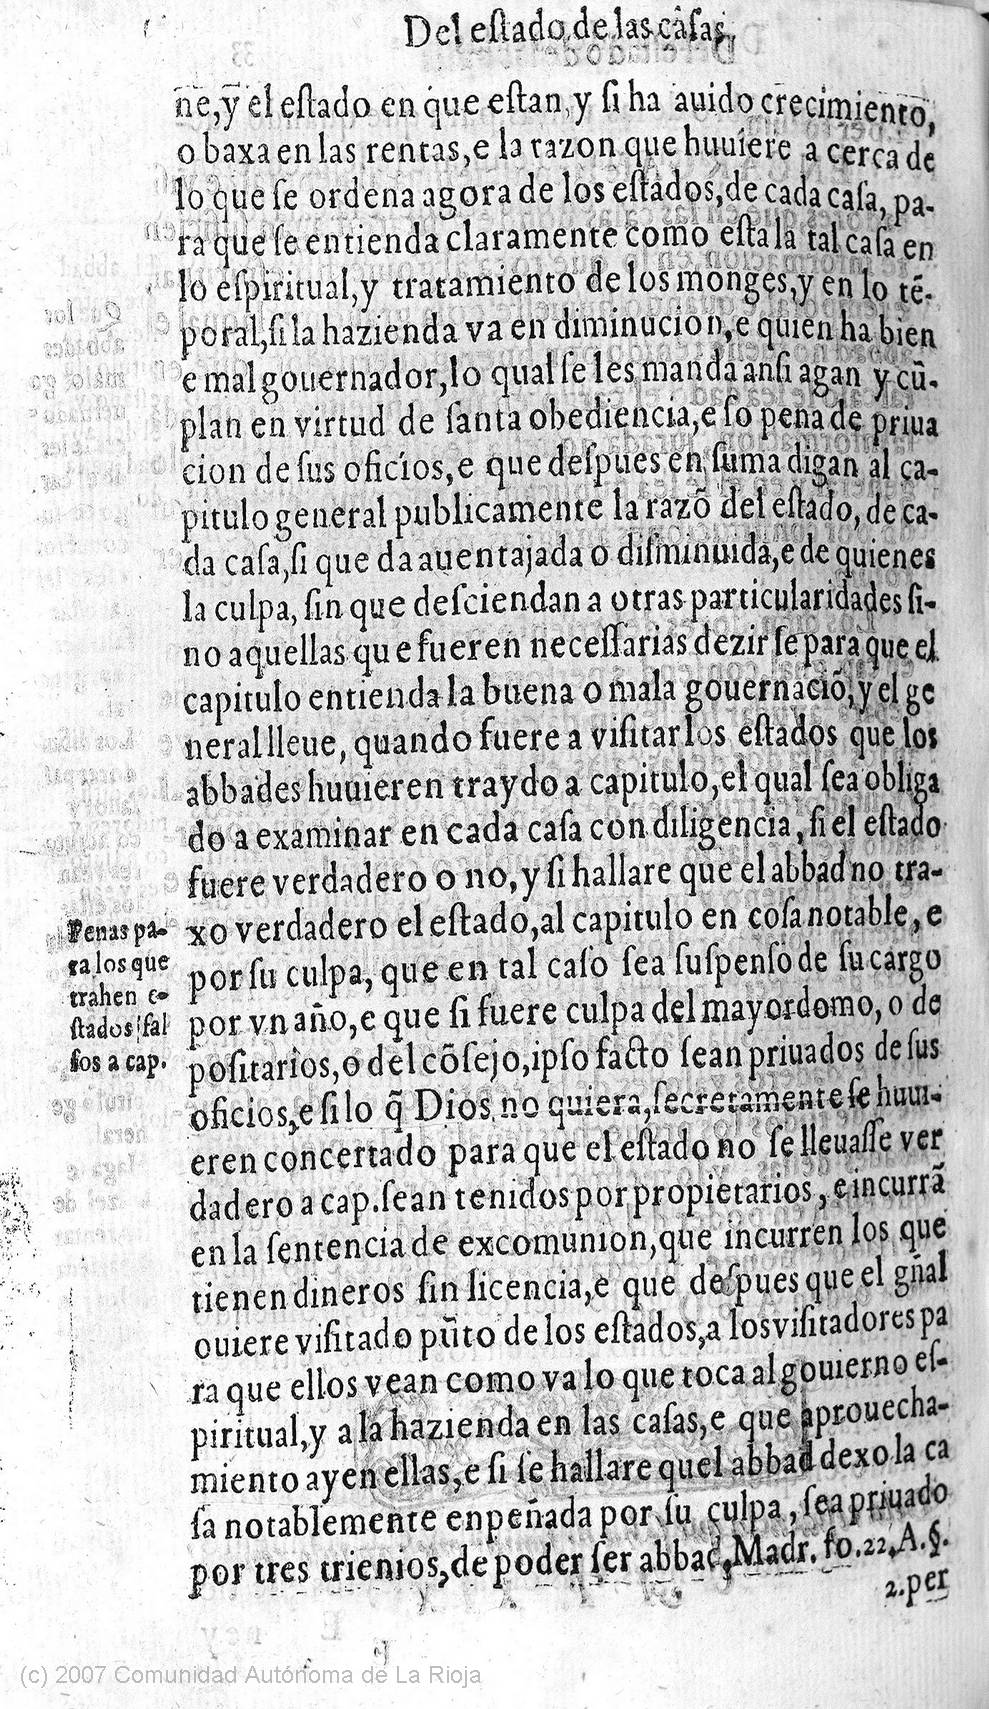 Del eſtado de las caſas,
ne, y el eſtado en que eſtan, y ſi ha auido crecimiento,
o baxa en las rentas, e la razon que huuiere a cerca de
lo que ſe ordena agora de los eſtados, de cada caſa, pa-
ra que ſe entienda claramente como eſta la tal caſa en
lo eſpiritual, y tratamiento de los monges, y en lo tẽ-
poral, ſi la hazienda va en diminucion, e quien ha bien
e mal gouernador, lo qual ſe les manda anſi agan y cũ-
plan en virtud de ſanta obediencia, e ſo pena de priua
cion de ſus oficios, e que deſpues en ſuma digan al ca-
pitulo general publicamente la razõ del eſtado, de ca-
da caſa, ſi queda auentajada o diſminuida, e de quien es
la culpa, ſin que deſciendan a otras particularidades ſi-
no aquellas que fueren neceſſarias dezir ſe para que el
capitulo entienda la buena o mala gouernaciõ, y el ge
neral lleue, quando fuere a viſitar los eſtados que los
abbades huuieren traydo a capitulo, el qual ſea obliga
do a examinar en cada caſa con diligencia, ſi el eſtado
fuere verdadero o no, y ſi hallare que el abbad no tra-
xo verdadero el eſtado, al capitulo en coſa notable, e
por ſu culpa, que en tal caſo ſea ſuſpenſo de ſu cargo
por vn año, e que ſi fuere culpa del mayordomo, o de
poſitarios, o del cõſejo, ipſo facto ſean priuados de ſus
oficios, e ſi lo q̃ Dios no quiera, ſecretamente ſe huui-
eren concertado para que el eſtado no ſe lleuaſſe ver
dadero a cap. ſean tenidos por propietarios, e incurrã
en la ſentencia de excomunion, que incurren los que
tienen dineros ſin licencia, e que deſpues que el gñal
ouiere viſitado pũto de los eſtados, a los viſitadores pa
ra que ellos vean como va lo que toca al gouierno eſ-
piritual, y a la hazienda en las caſas, e que aprouecha-
miento ay en ellas, e ſi ſe hallare quel abbad dexo la ca
ſa notablemente enpeñada por ſu culpa, ſea priuado
por tres trienios, de poder ſer abbad, Madr. fo. 22, A. §.
2. per
Penas pa-
ra los que
trahen e-
ſtados fal
ſos a cap.
(c) 2007 Comunidad Autónoma de La Rioja